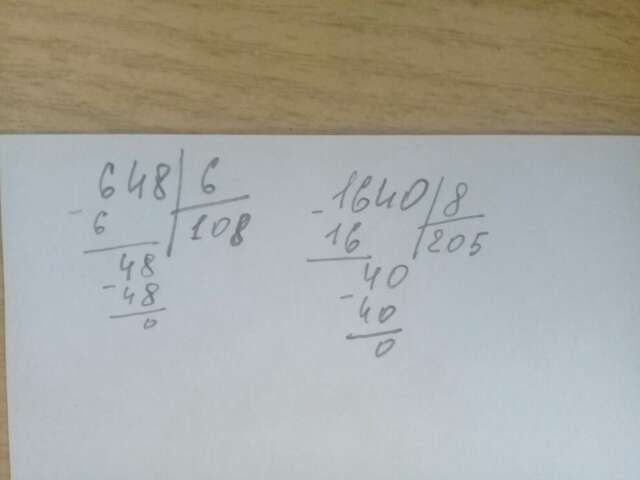 648 | 6
- 6 | 108
48
- 48
0
- 1640 | 8
16 | 205
40
- 40
0